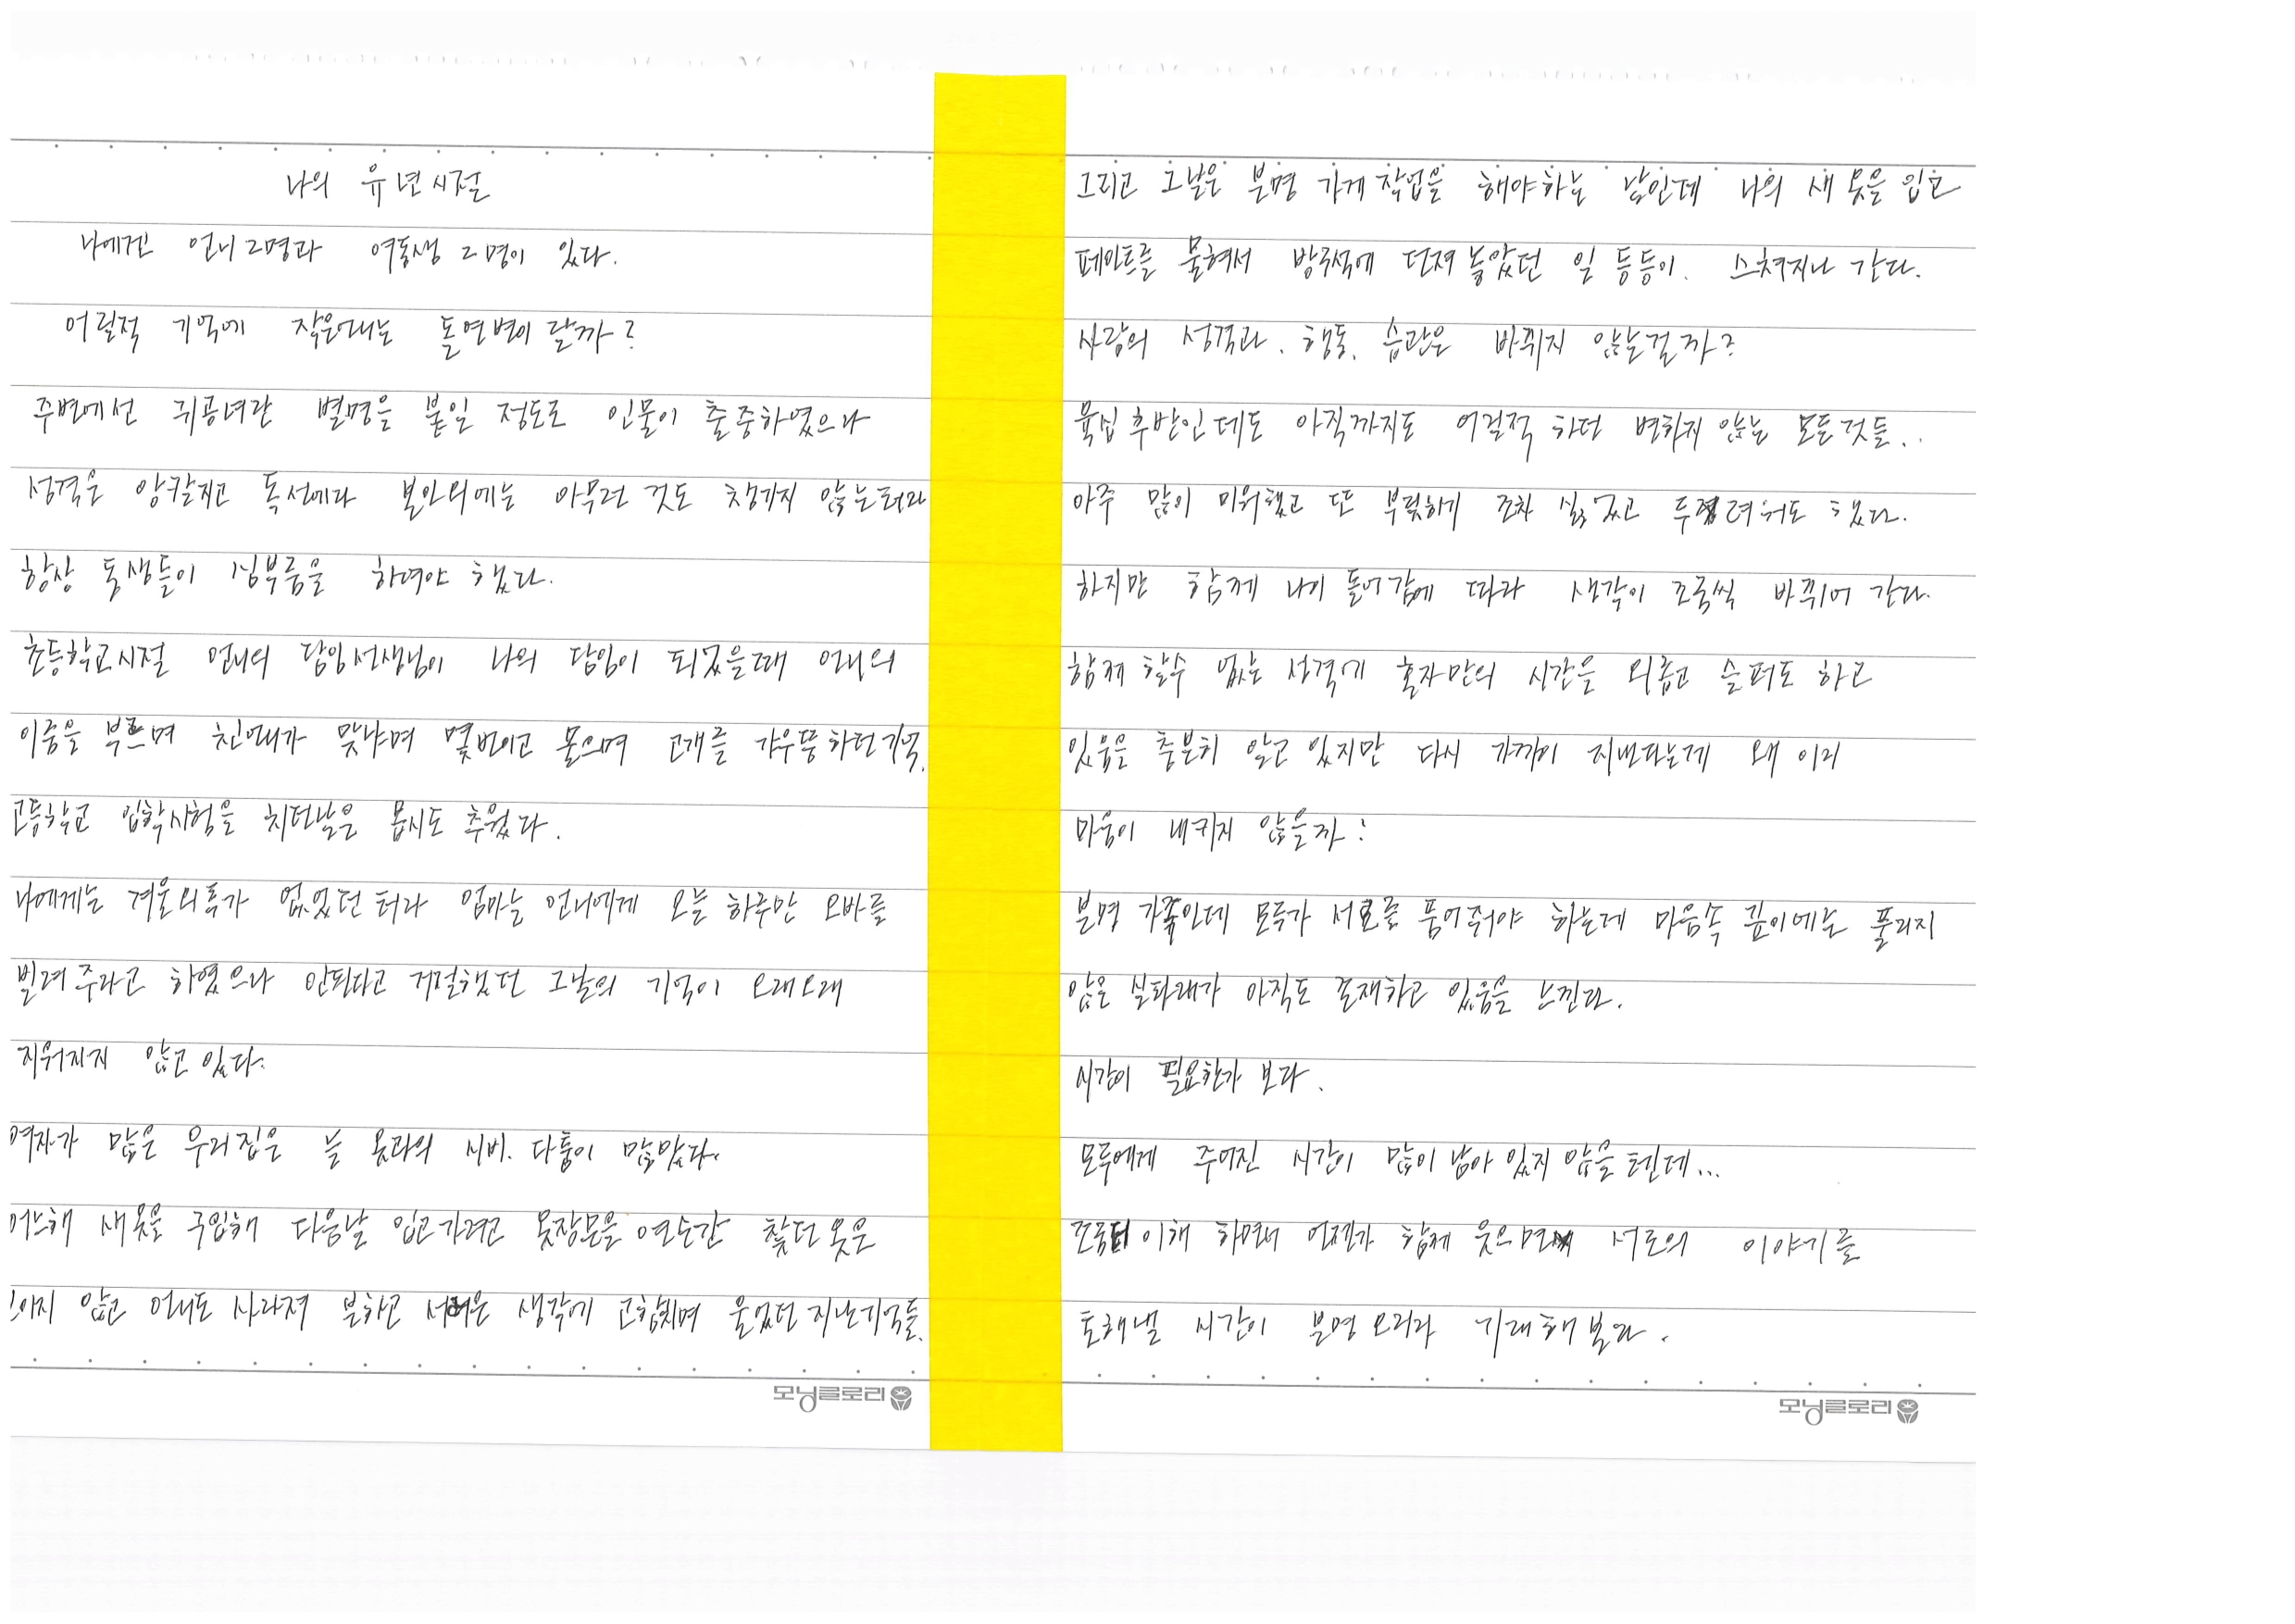 나의 유년시절
나에겐 언니 2명과 여동생 2명이 있다.
어릴적 기억에 작은언니는 돌연변이 랄까?
주변에선 귀공녀란 별명을 붙일 정도로 인물이 출중하였으나
성격은 앙칼지고 독서에다 본인외에는 아무런 것도 챙기지 않는터라
항상 동생들이 심부름을 하여야 했다.
초등학교시절 언니의 담임선생님이 나의 담임이 되었을때 언니의
이름을 부르며 친언니가 맞냐며 몇번이고 물으며 고개를 갸우뚱하던기억.
고등학교 입학시험을 치던날은 몹시도 추웠다.
나에게는 겨울외투가 없었던 터라 엄마는 언니에게 오늘 하루만 오바를
빌려주라고 하였으나 안된다고 거절했던 그날의 기억이 오래오래
지워지지 않고 있다.
여자가 많은 우리집은 늘 옷과의 시비. 다툼이 많았다.
어느해 새옷을 구입해 다음날 입고가려고 옷장문을 연순간 찾던옷은
않고 언니도 사라져 분하고 서러운 생각에 고함치며 울었던 지난기억들.
그리고 그날은 분명 가게작업을 해야하는 날인데 나의 새옷을 입고
페인트를 묻혀서 방구석에 던져놓았던 일 등등이. 스쳐지나 간다.
사람의 성격과. 행동. 습관은 바뀌지 않는걸까?
육십후반인데도 아직까지도 어릴적 하던 변하지 않는 모든것들..
아주 많이 미워했고 또 부딪하기 조차 싫었고 두려워도 했다.
하지만 함께 나이 들어감에 따라 생각이 조금씩 바뀌어 간다.
함께 할수 없는 성격에 혼자만의 시간을 외롭고 슬퍼도 하고
있음은 충분히 알고 있지만 다시 가까이 지낸다는게 왜 이리
마음이 내키지 않을까?
분명 가족인데 모두가 서로를 품어줘야 하는데 마음속 깊이에는 풀리지
않은 실타래가 아직도 존재하고 있음을 느낀다.
시간이 필요한가 보다.
모두에게 주어진 시간이 많이 남아 있지 않을텐데...
조금더 이해 하면서 언젠가 함께 웃으며 서로의 이야기를
토해낼 시간이 분명 오리라 기대해본다.
모닝글로리
모닝글로리